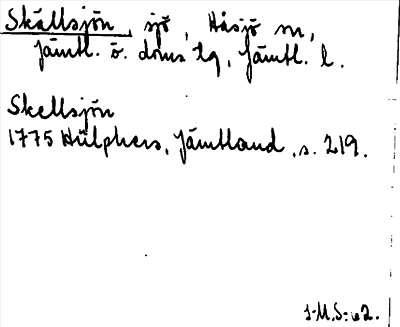 Skällsjön, sjö, Håsjö sn,
Jämtl. ö. doms tg, Jämtl. l.
Skellsjön
1775 Hülphers, Jämtland, s. 219.